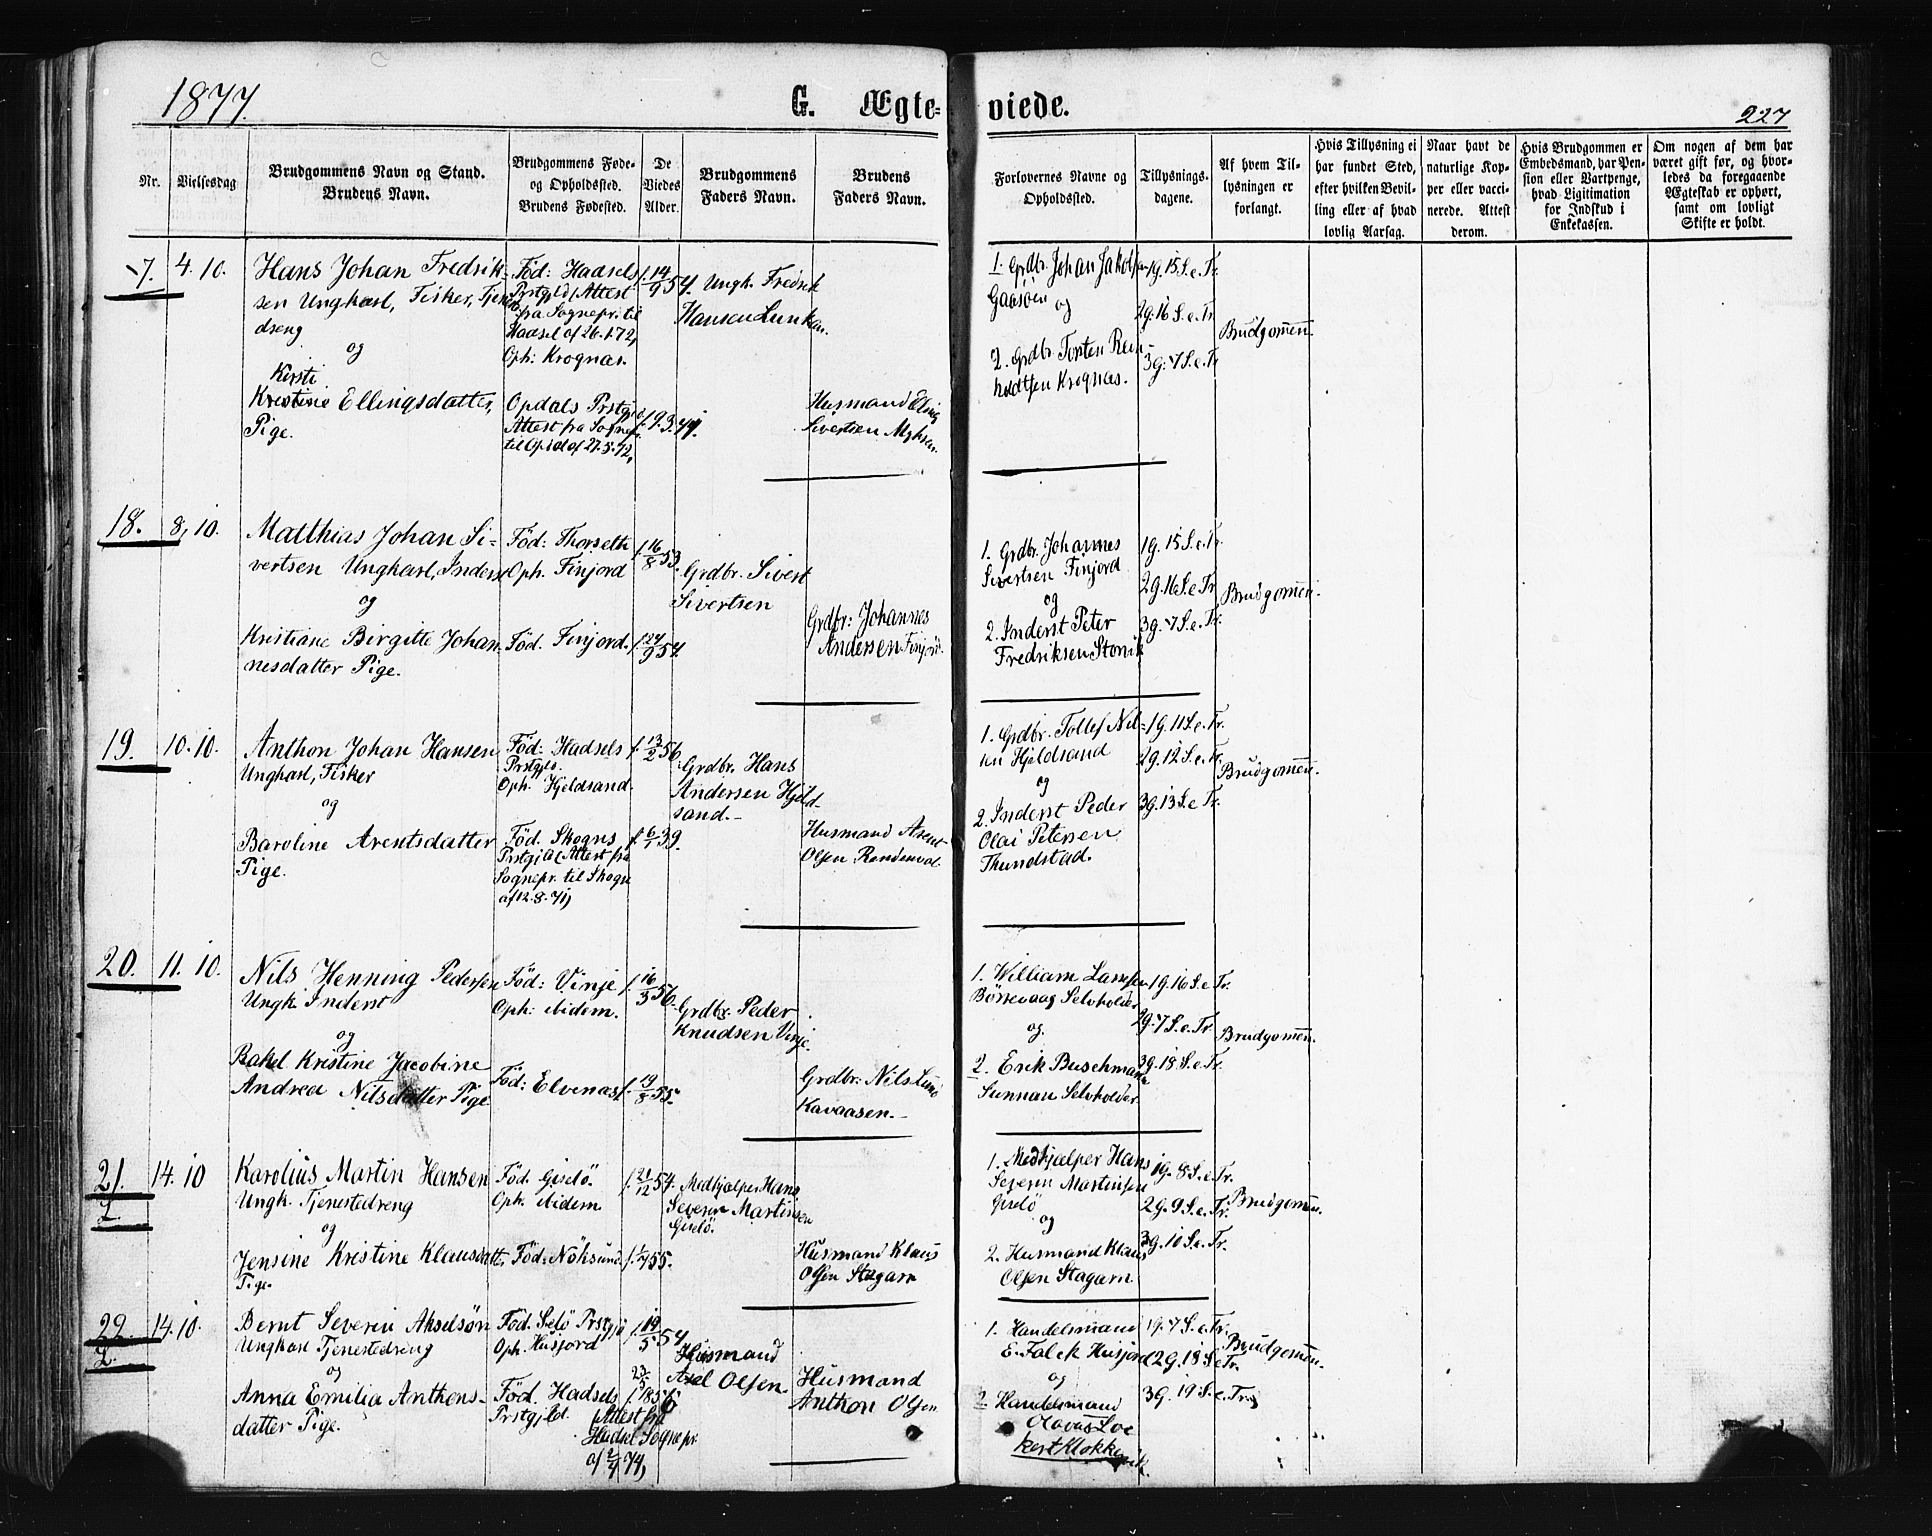 1877.
G. Ægte-
viede.
227
Nr.
Vielsesdag
Brudgommens Navn og Stand.
Brudens Navn.
Brudgommens Føde-
og Opholdssted.
Brudens Fødested.
De
Viedes
Alder.
Brudgommens
Faders Navn.
Brudens
Faders Navn.
Forlovernes Navne og
Opholdssted.
Tillysnings-
dagene.
Af hvem Til-
lysningen er
forlangt.
Hvis Tillysning ei
har fundet Sted,
efter hvilken Bevil-
ling eller af hvad
lovlig Aarsag.
Naar havt de
naturlige Kop-
per eller vacci-
nerede. Attest
derom.
Hvis Brudgommen er
Embedsmand, har Pen-
sion eller Vartpenge,
hvad Ligitimation
for Indskud i
Enkekassen.
Om nogen af dem har
været gift før, og hvor-
ledes da foregaaende
Ægteskab er ophørt,
samt om lovligt
Skifte er holdt.
7. 4.10.
Hans Johan Fredrik-
sen Ungkarl, Fisker, Tjeneste
dreng
og
Kirsti
Kristine Ellingsdatter,
Pige.
Fød: Hadsels
Prstgjld (Attest
fra Sognepr. til
Hadsel af 26.1.72,
Oph: Krognæs.
Opdals Prstgj
Attest fra Sognepr.
til Opdal af 27.5.72,
f. 14/9 54.
f. 19.3.47.
Ungk. Fredrik
Hansen Lunkan.
Husmand Eling
Sivertsen
1. Grdbr. Johan Jakobsen
Gaasøen og
2. Grdbr. Torsten Rein-
holdtsen Krognæs.
1g. 15 S.e.Tr.
2g. 16 S.e.Tr.
3g. 17 S.e.Tr
Brudgommen.
18. 8.10.
Matthias Johan Si-
vertsen Ungkarl, Inderst
og
Kristiane Birgitte Johan
nesdatter Pige.
Fød: Thorseth
Oph. Finjord
Fød. Finjord.
f. 16/8 53.
f. 24/9 54.
Grdbr. Sivert
Sivertsen
Grdbr: Johannes
Andersen Finjord.
1. Grdbr. Johannes
Sivertsen Finjord
og
2. Inderst Peter
Fredriksen Storvik
1g. 15 S.e.Tr.
2g. 16 S.e.Tr.
3g. 17 S.e.Tr.
Brudgommen.
19. 10.10.
Anthon Johan Hansen
Ungkarl, Fisker
og
Baroline Arentsdatter
Pige.
Fød: Hadsels
Prstgjld.
Oph. Hjeldsand.
Fød. Skogns
Prstgjld (Attest fra
Sognepr. til Skogn
af 12.8.71)
f. 13/2 56.
f. 6/1 39.
Grdbr. Hans
Andersen Hjeld-
sand.
Husmand Arent
Olsen
1. Grdbr. Tollef Nil-
sen Hjeldsand
og
2. Inderst Peder
Olai Petersen
Thundstad.
1g. 11 S.e.Tr.
2g. 12 S.e.Tr.
3g. 13 S.e.Tr.
Brudgommen.
20. 11.10.
Nils Henning Pedersen
Ungk. Inderst
og
Rakel Kristine Jacobine
Andrea Nilsdatter Pige
Fød: Vinje
Oph: ibidem.
Fød: Elvenæs
f. 16/3 56.
f. 19/8 55.
Grdbr. Peder
Knudsen Vinje.
Grdbr. Nils Lund
Kavaasen.
1. William Larssen
Børrevaag Selvholder
og
2. Erik Buschmann
Sunnan Selvholder
1g. 16 S.e.Tr.
2g. 17 S.e.Tr.
3g. 18 S.e.Tr.
Brudgommen.
21. 14.10
1.
Karolius Martin Hansen
Ungk. Tjenestedreng
og
Jensine Kristine Klausdatt.
Pige.
Fød. Gislø.
Oph. ibidem.
Fød: Nøksund
f. 21/12 54.
f. 1/4 55.
Medhjælper Hans
Severin Martinsen
Gislø.
Husmand Klaus
Olsen Stagarn
1. Medhjælper Hans
Severin Martinsen
Gislø
og
2. Husmand Klaus
Olsen Stagarn
1g. 8 S.e.Tr.
2g. 9 S.e.Tr.
3g. 10 S.e.Tr.
Brudgommen.
22. 14.10.
2.
Bernt Severin Akselsøn
Ungkarl Tjenestedreng
og
Anna Emilia Anthons-
datter Pige.
Fød. Selø Prstgjd
Oph. Husjord
Fød. Hadsels
Prstgjld. (Attest fra
Hadsel Sognepr
af 2/4 74)
f. 19/5 54
23/5
f. 1856
Husmand
Axel Olsen.
Husmand
Anthon Olsen
1. Handelsmand
E. Falck Husjord
og
2. Handelsmand
Olavus Loc
kert Klokkervik.
1g. 17 S.e.Tr.
2g. 18 S.e.Tr.
3g. 19 S.e.Tr.
Brudgommen.